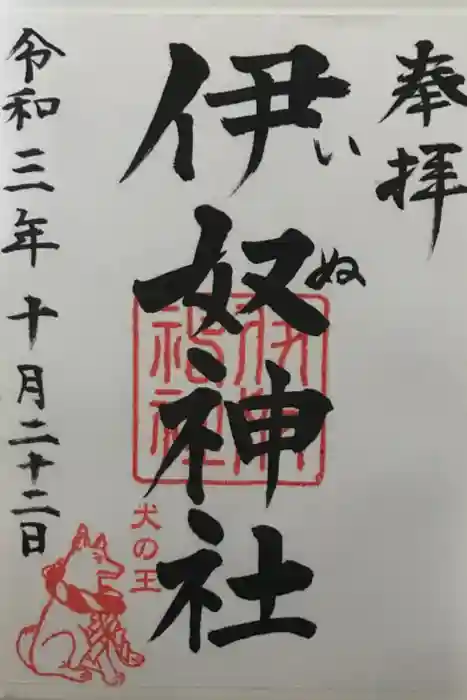 奉拝
伊奴神社
いぬ
令和三年十月二十二日
犬の王